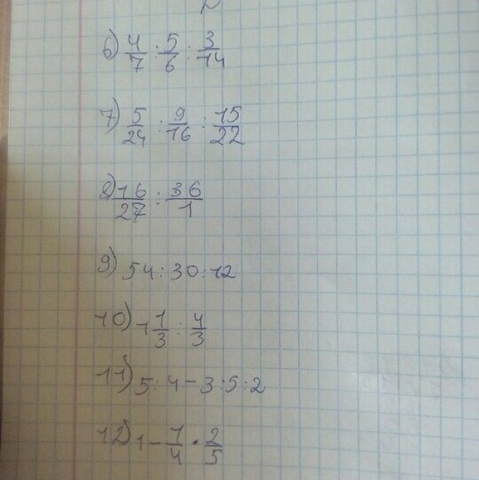 6) 4/7 : 5/6 : 3/14
7) 5/24 : 9/16 : 15/22
8) 16/27 : 36/1
9) 54 : 30 : 12
10) 1 1/3 : 4/3
11) 5 : 4 - 3 : 5 : 2
12) 1 - 1/4 • 2/5